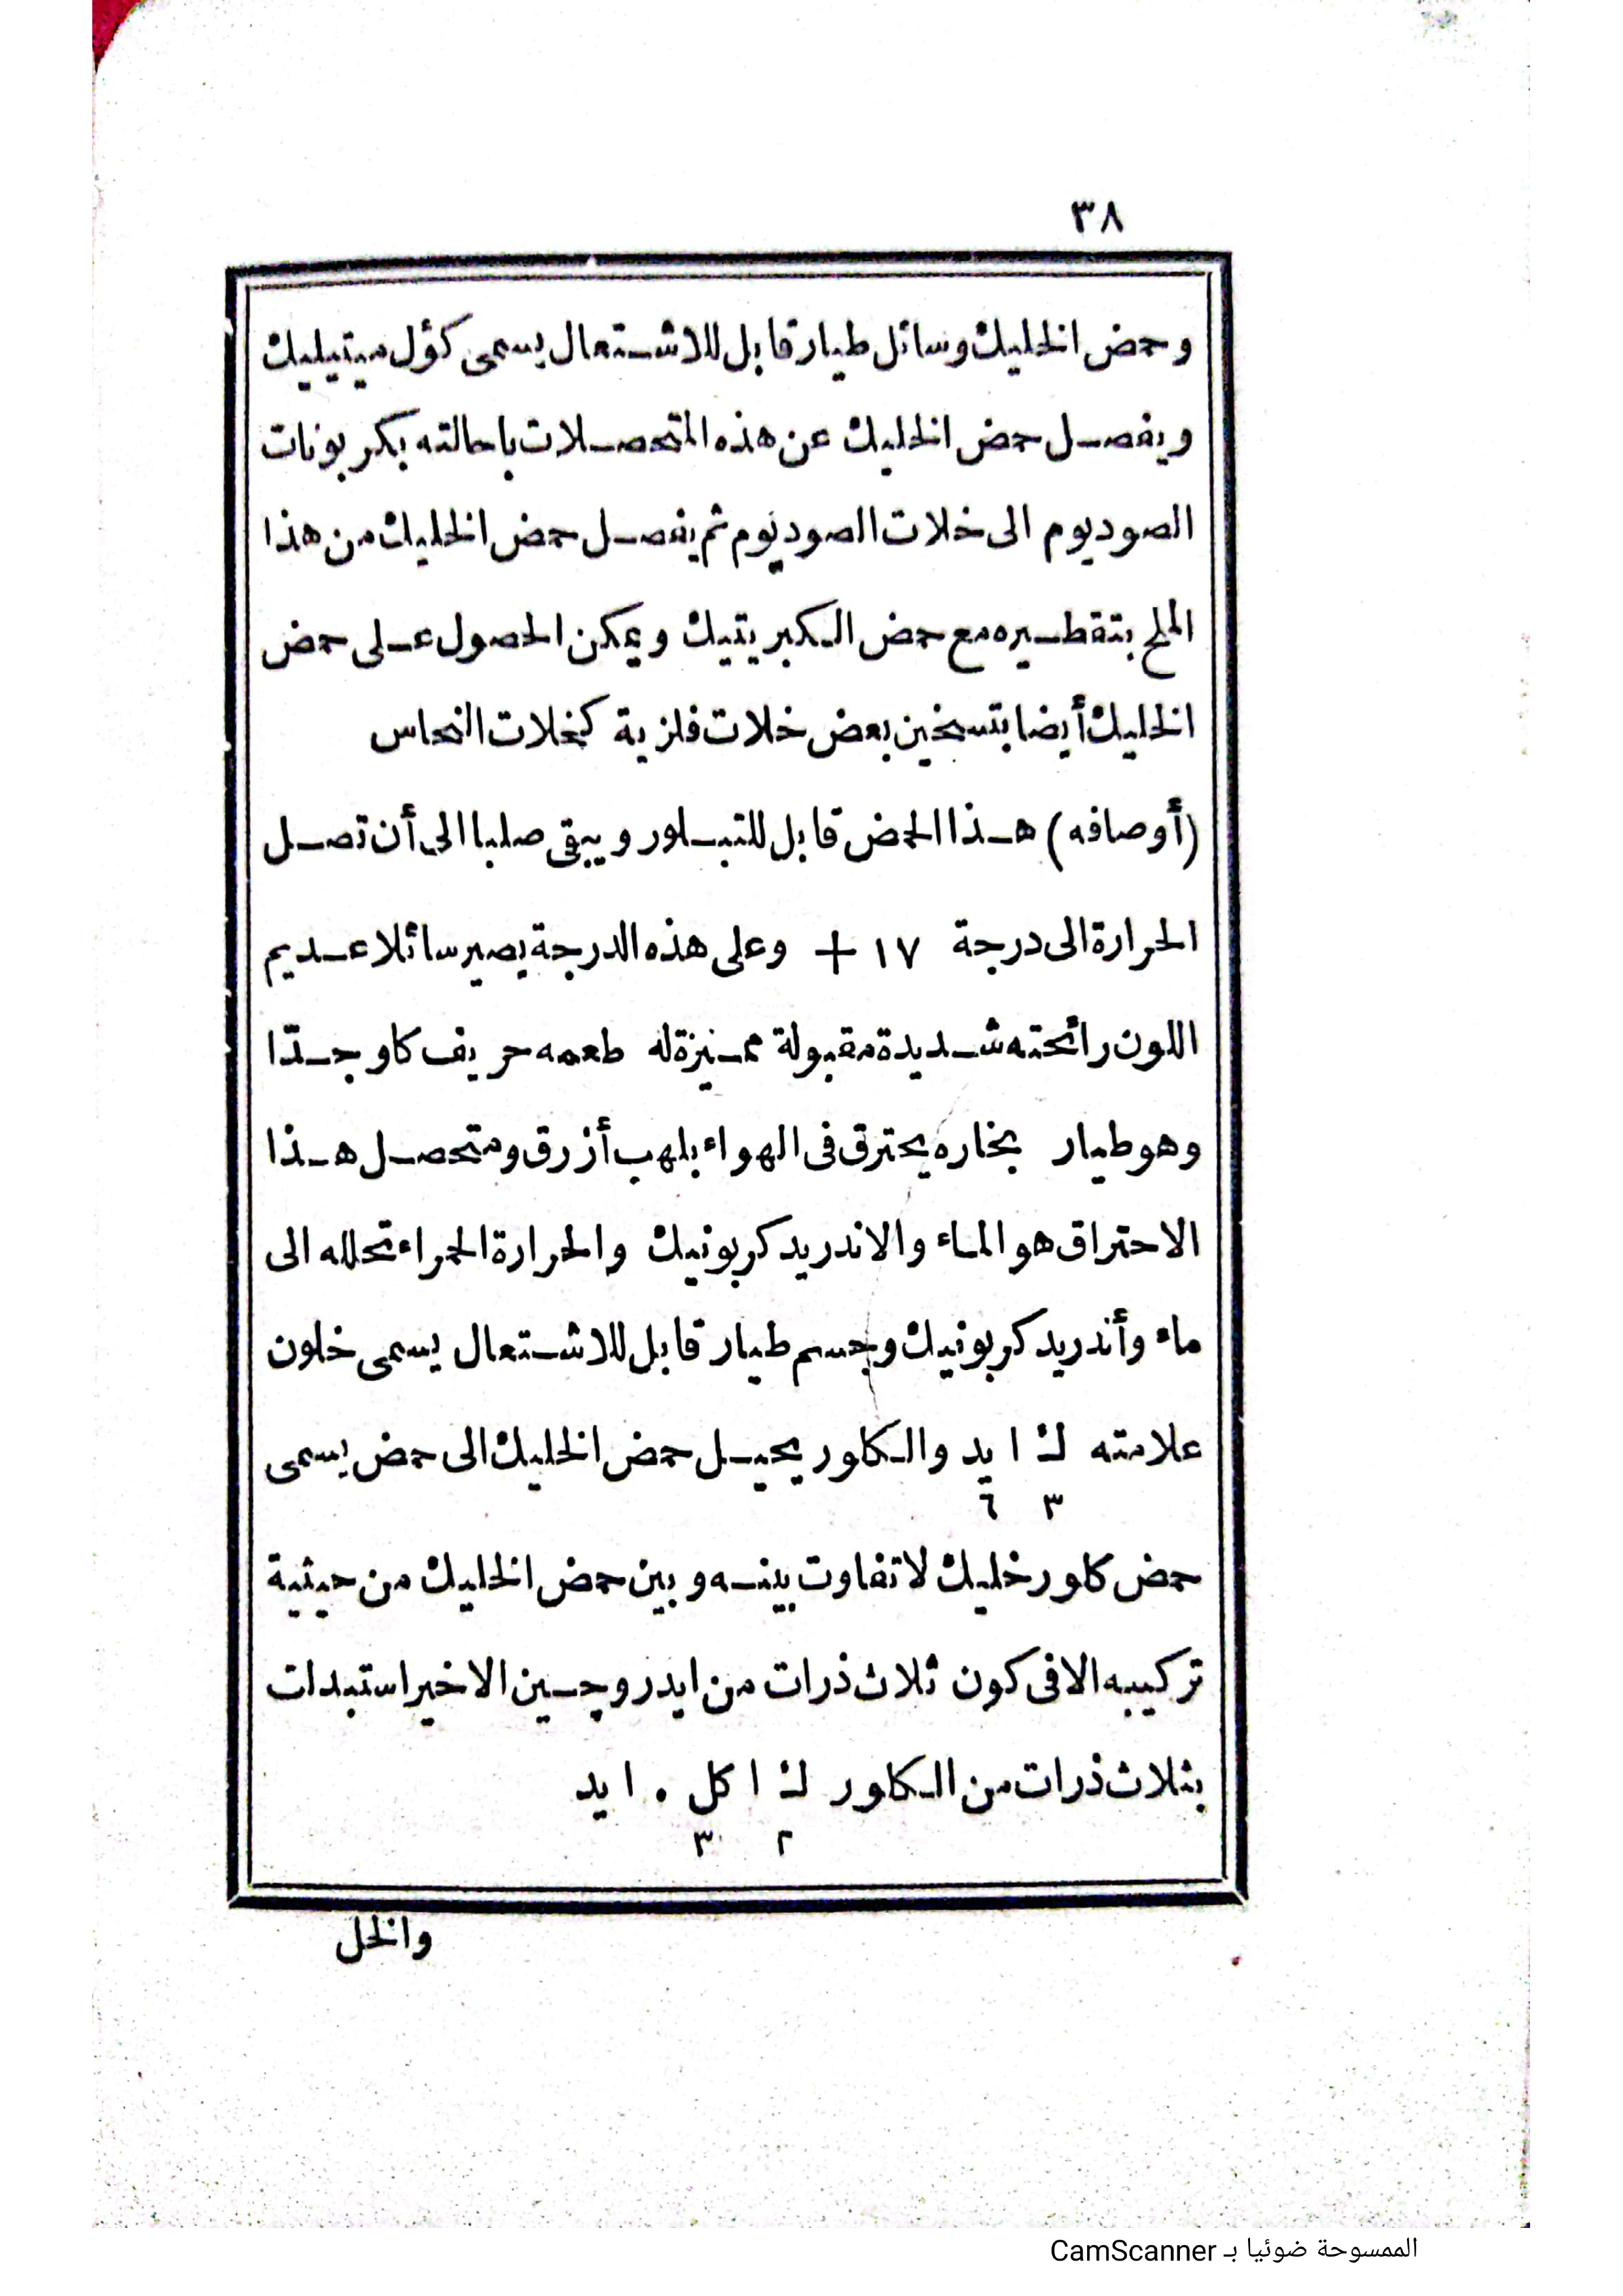 ٣٨
وحمض الخليك وسائل طيار قابل للاشتعال يسمى كؤل ميتيليك
ويفصل حمض الخليك عن هذه المتحصلات باحالته بكربونات
الصوديوم الى خلات الصوديوم ثم يفصل حمض الخليك من هذا
الملح بتقطيره مع حمض الكبريتيك ويمكن الحصول على حمض
الخليك أيضا بتسخين بعض خلات فلزية كخلات النحاس
(أوصافه) هذا الحمض قابل للتبلور ويبقى صلبا الى أن تصل
الحرارة الى درجة ١٧ + وعلى هذه الدرجة يصير سائلا عديم
اللون رائحته شديدة مقبولة مميزة له طعمه حريف كاو جدّا
وهو طيار بخاره يحترق فى الهواء بلهب أزرق ومتحصل هذا
الاحتراق هو الماء والاندريد كربونيك والحرارة الحمراء تحلله الى
ماء وأندريد كربونيك وجسم طيار قابل للاشتعال يسمى خلون
علامته ك ا يد والكلور يحيل حمض الخليك الى حمض يسمى
٣ ٦
حمض كلور خليك لا تفاوت بينه وبين حمض الخليك من حيثية
تركيبه الا فى كون ثلاث ذرات من ايدروچين الاخير استبدات
بثلاث ذرات من الكلور ك ا كل . ا يد
٢ ٣
والخل
الممسوحة ضوئيا بـ CamScanner